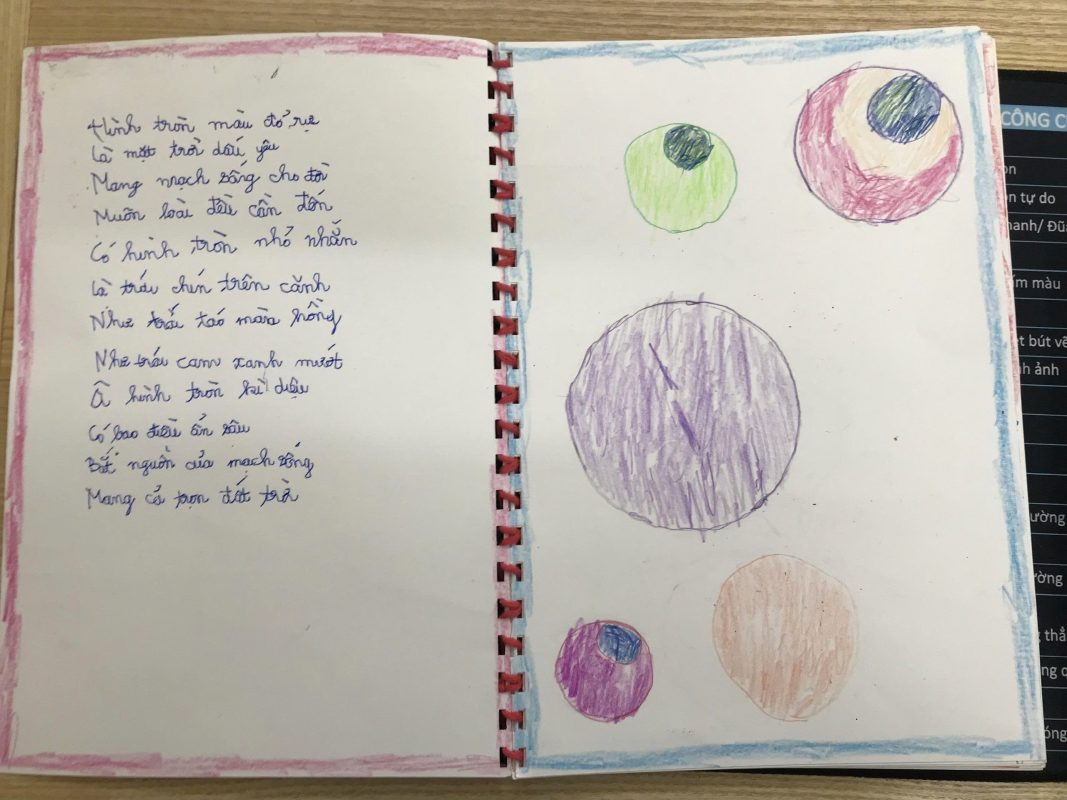 Hình tròn màu đỏ rực
Là mặt trời dấu yêu
Mang mạch sống cho đời
Muôn loài đều cần đến
Có hình tròn nhỏ nhắn
Là trái chín trên cành
Như trái táo màu hồng
Như trái cam xanh mướt
Ôi hình tròn kì diệu
Có bao điều ẩn sâu
Bắt nguồn của mạch sống
Mang cả trọn đất trời
CÔNG C
tự do
hanh/ Đũa
màu
bút vẽ
ảnh